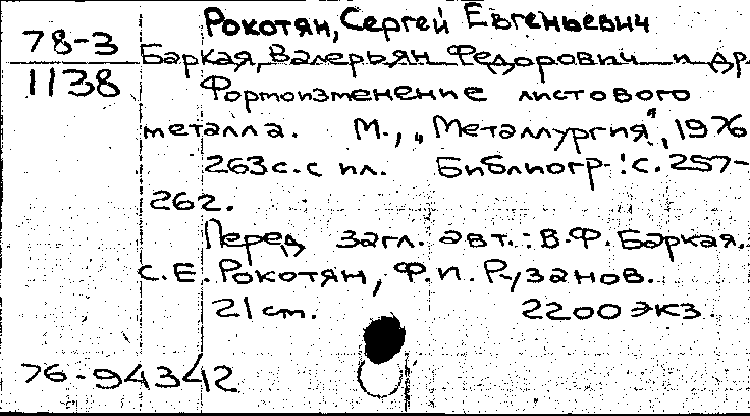 Рокотян, Сергей Евгеньевич
78-3 Баркая, Валерьян Федорович и др.
1138 Формоизменение листового
металла. М., „Металлургия", 1976
263 с. с ил. Библиогр.: с. 257-
262.
Перед загл. авт.: В.Ф. Баркая.
С.Е. Рокотян, Ф.П. Рузанов.
21 cm. 2200 экз.
76-94342